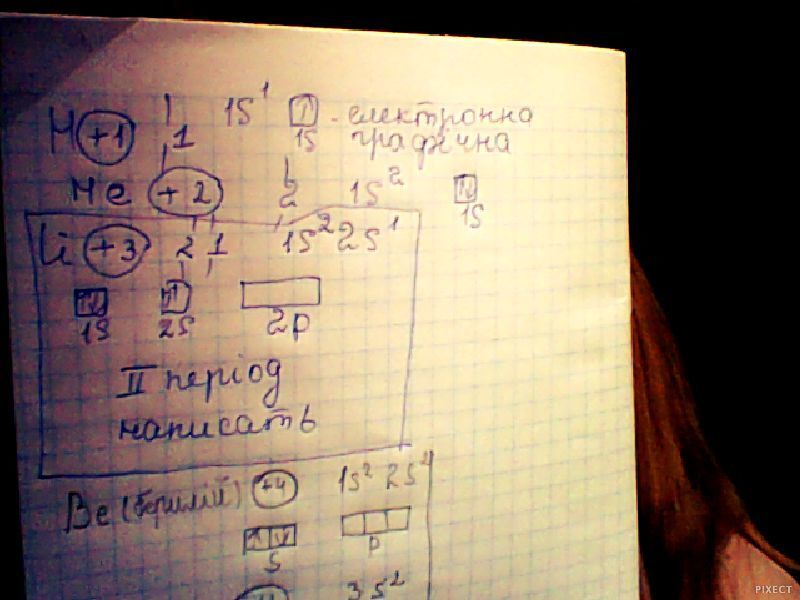 H +1 1 1S¹ - електронна
1S графічна
He +2 2 1S²
1S
Li +3 2 1 1S² 2S¹
1S 2S 2p
II період
написать
Be (берилій) +4 1S² 2S²
S p
3S²
PIXECT